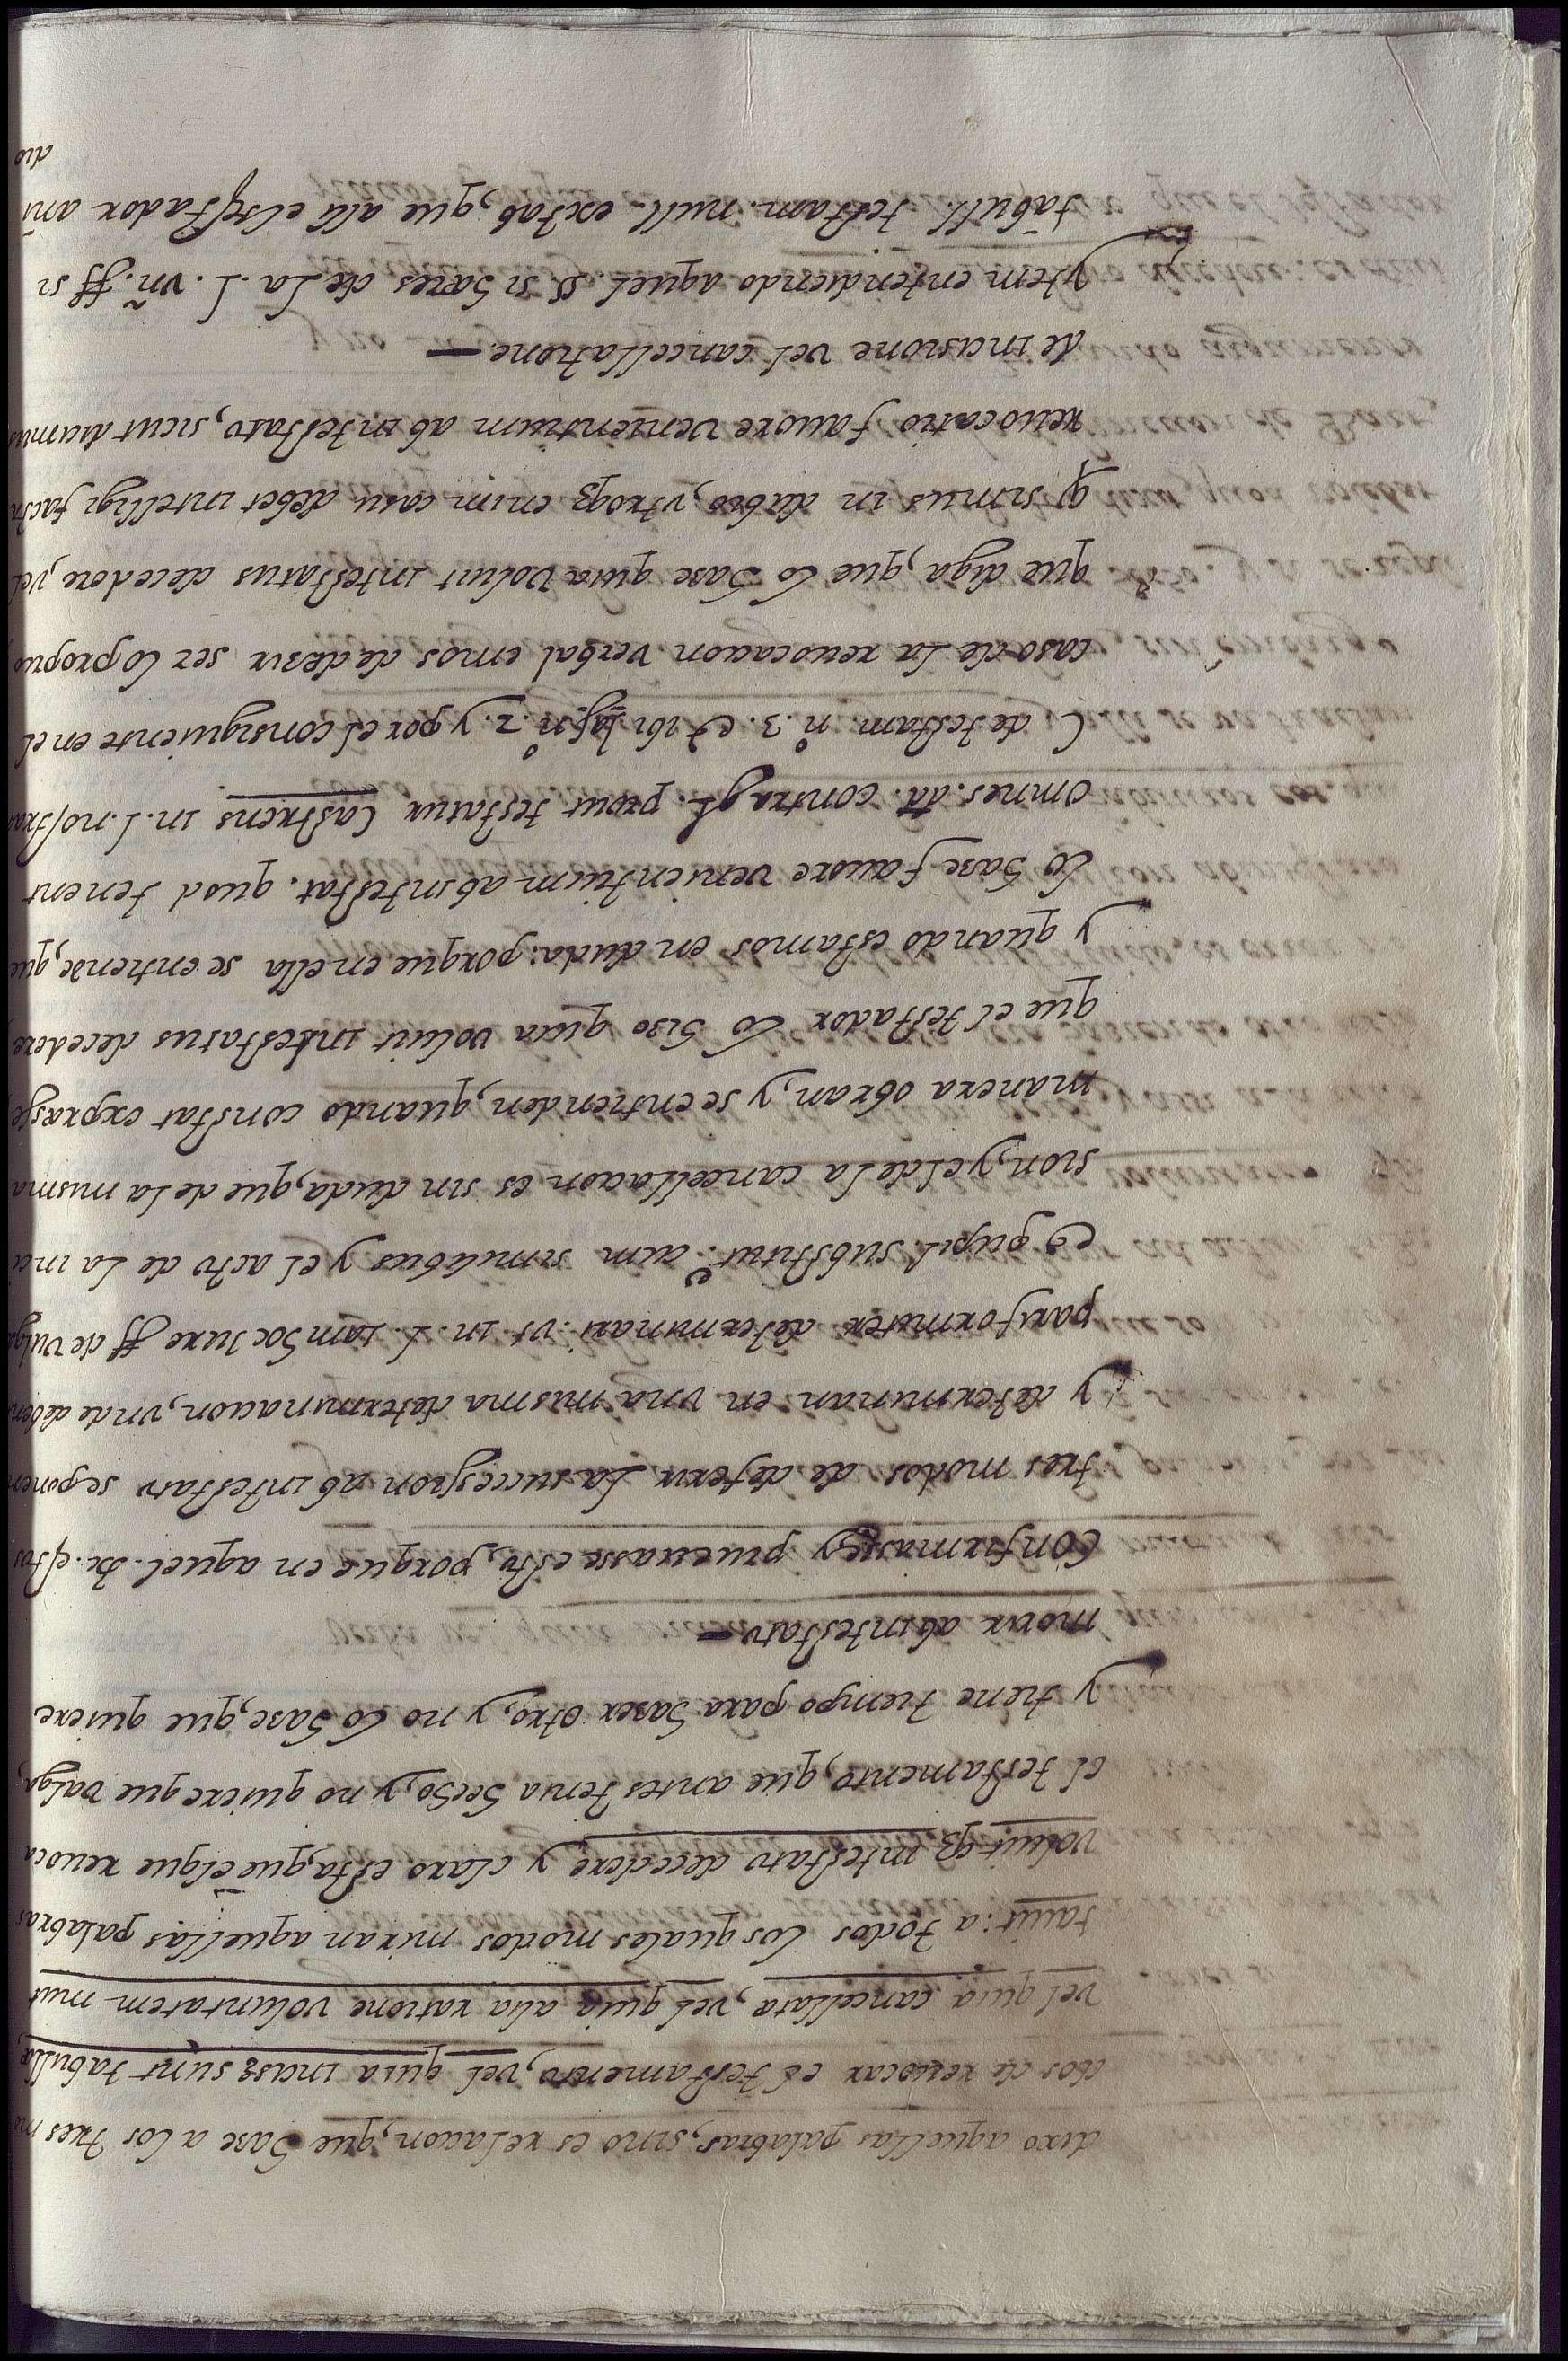 dixo aquellas palabras, sino es relacion, que haze a los tres mo
dos de revocar el testamento, vel quia incisæ sunt tabullæ,
vel quia cancellata, vel quia alia ratione voluntatem mut
tavit: a todos los quales modos miran aquellas palabras
voluitqȝ intestato decedere, y claro esta, que el que revoca
el testamento, que antes tenia hecho, y no quiere que valga,
y tiene tiempo para hazer otro, y no lo haze, que quiere
morir abintestato—
Confirmasse, y pruevasse esto, porque en aquel. §. estos
tres modos de deferir la succession ab intestato se ponen
y determinan en una misma determinacion, unde deben
pariformiter determinari. ut in. l. iam hoc iure ff de vulga
et pupil. substitut. cum similibus y el acto de la inci
sion, y el de la cancellacion es sin duda, que de la misma
manera obran, y se entienden, quando constat expresse,
que el testador lo hizo quia voluit intestatus decedere
y quando estamos en duda: porque en ella se entiende, que
lo haze favore venientium ab intestat. quod tenent
omnes. dd. contra gl. prout testatur Castrens in. l. nostram
C de testam. nº. 3. et ibi Jas. nº. 2. y por el consiguiente en el
caso de la revocacion verbal emos de dezir ser lo propio,
que diga, que lo haze quia voluit intestatus decedere, vel
q simus in dubio, utroqȝ enim casu debet intelligi facta
revocatio favore venientium ab intestato, sicut dicimus
de incisione vel cancellatione.—
ytem entendiendo aquel §. si hæres de la. l. un̄. ff si
tabull. testam. null. extab, que alli el testador ani
dio